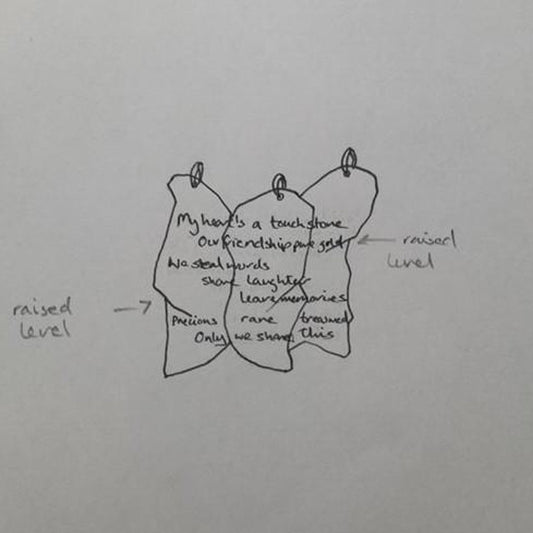 My heart's a touchstone
Our friendship pure gold
We steal words
share laughter
leave memories
Precious rare treasured
Only we share this
raised level
raised level